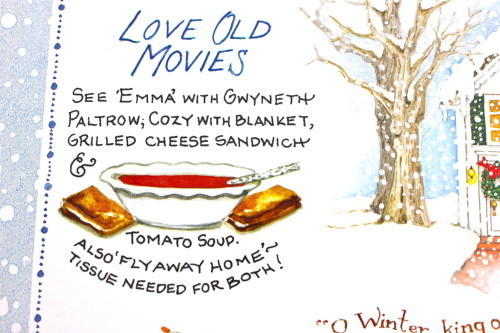 LOVE OLD
MOVIES
SEE 'EMMA' WITH GWYNETH
PALTROW; COZY WITH BLANKET,
GRILLED CHEESE SANDWICH
&
TOMATO SOUP.
ALSO 'FLY AWAY HOME' ~
TISSUE NEEDED FOR BOTH!
"O Winter, king o